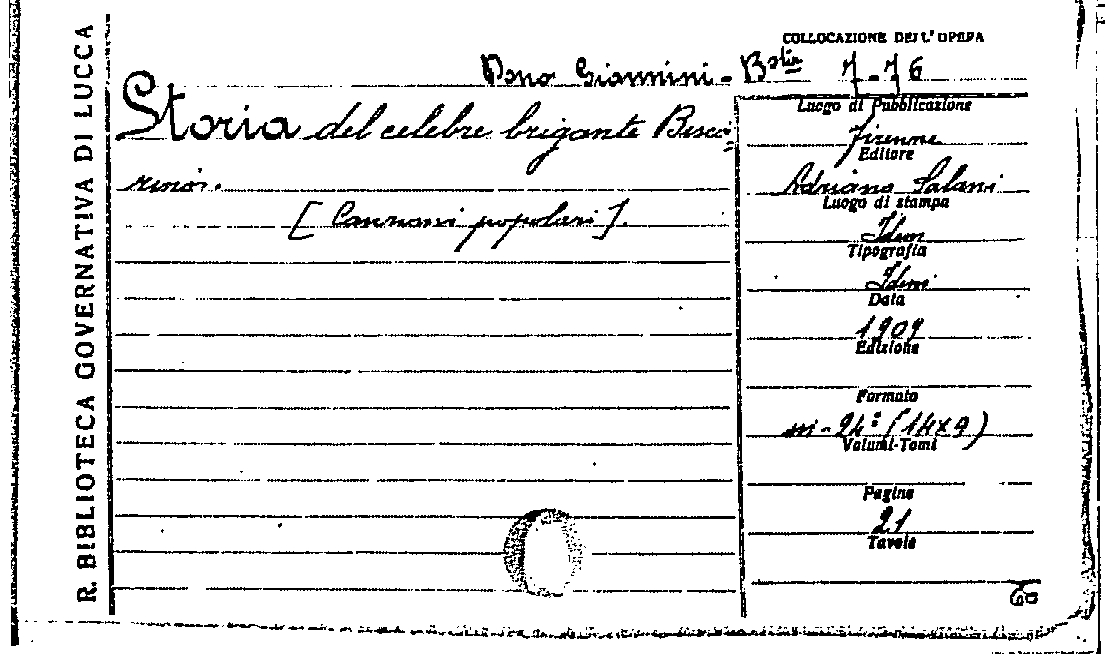 R. BIBLIOTECA GOVERNATIVA DI LUCCA
COLLOCAZIONE DELL'OPERA
Dono Giannini - Bsta 7-76
Storia del celebre brigante Besca-
rino.
[Canzoni popolari].
Luogo di Pubblicazione
Firenze
Editore
Adriano Salani
Luogo di stampa
Idem
Tipografia
Idem
Data
1909
Edizione
Formato
in-24° (14x9)
Volumi-Tomi
Pagine
21
Tavole